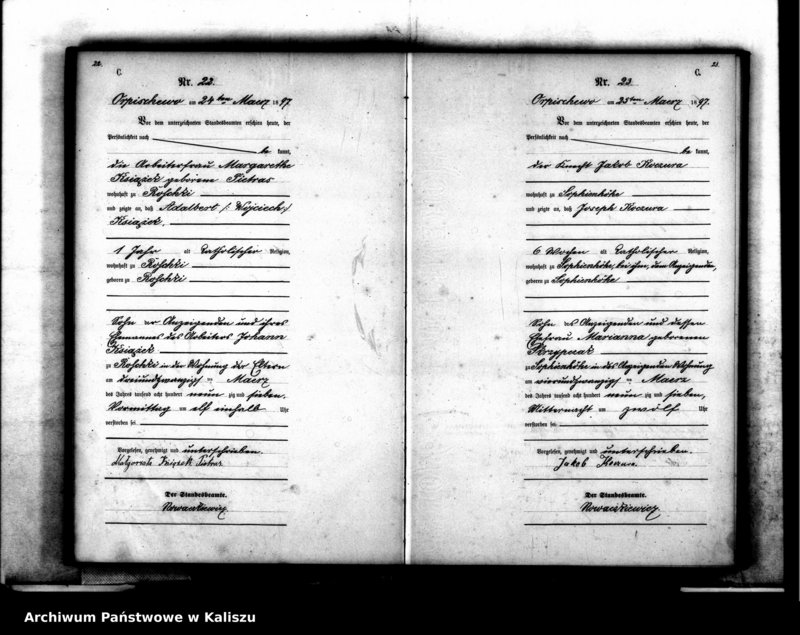 22.
C.
Nr. 22.
Orpischewo am 24ten Maerz 1897.
Vor dem unterzeichneten Standesbeamten erschien heute, der
Persönlichkeit nach
be kannt,
die Arbeiterfrau Margarethe
Książek geborene Pietras
wohnhaft zu Roschki
und zeigte an, daß Adalbert /: Wojciech :/
Książek,
1 Jahr alt katholischer Religion,
wohnhaft zu Roschki
geboren zu Roschki
Sohn der Anzeigenden und ihres
Ehmannes des Arbeiters Johann
Książek
zu Roschki in der Wohnung der Eltern
am dreiundzwanzigsten Maerz
des Jahres tausend acht hundert neun zig und sieben,
Vormittag um elf einhalb Uhr
verstorben sei
Vorgelesen, genehmigt und unterschrieben.
Małgorzata Książek Pietras
Der Standesbeamte.
Nowackiewicz.
23.
C.
Nr. 23.
Orpischewo am 25ten Maerz 1897.
Vor dem unterzeichneten Standesbeamten erschien heute, der
Persönlichkeit nach
be kannt,
der Knecht Jakob Koczura
wohnhaft zu Sophienhöhe
und zeigte an, daß Joseph Koczura
6 Wochen alt katholischer Religion,
wohnhaft zu Sophienhöhe, bei ihm, dem Anzeigenden,
geboren zu Sophienhöhe
Sohn des Anzeigenden und dessen
Ehefrau Marianna geborenen
Skrzypczak
zu Sophienhöhe in des Anzeigenden Wohnung
am vierundzwanzigsten Maerz
des Jahres tausend acht hundert neun zig und sieben,
Mitternacht um zwölf Uhr
verstorben sei
Vorgelesen, genehmigt und unterschrieben.
Jakob Koczura.
Der Standesbeamte.
Nowackiewicz
Archiwum Państwowe w Kaliszu